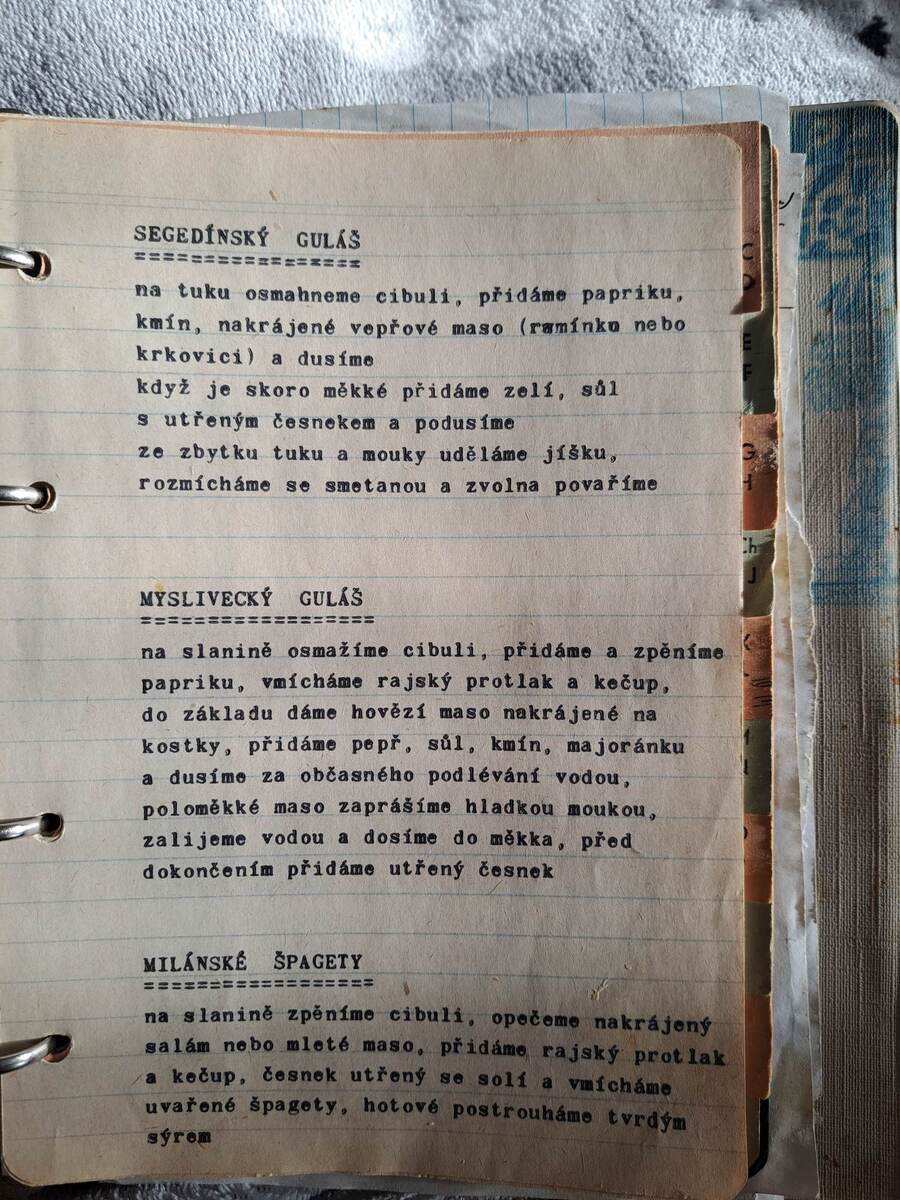 SEGEDÍNSKÝ GULÁŠ
==================
na tuku osmahneme cibuli, přidáme papriku,
kmín, nakrájené vepřové maso (ramínko nebo
krkovici) a dusíme
když je skoro měkké přidáme zelí, sůl
s utřeným česnekem a podusíme
ze zbytku tuku a mouky uděláme jíšku,
rozmícháme se smetanou a zvolna povaříme
MYSLIVECKÝ GULÁŠ
==================
na slanině osmažíme cibuli, přidáme a zpěníme
papriku, vmícháme rajský protlak a kečup,
do základu dáme hovězí maso nakrájené na
kostky, přidáme pepř, sůl, kmín, majoránku
a dusíme za občasného podlévání vodou,
poloměkké maso zaprášíme hladkou moukou,
zalijeme vodou a dosíme do měkka, před
dokončením přidáme utřený česnek
MILÁNSKÉ ŠPAGETY
==================
na slanině zpěníme cibuli, opečeme nakrájený
salám nebo mleté maso, přidáme rajský protlak
a kečup, česnek utřený se solí a vmícháme
uvařené špagety, hotové postrouháme tvrdým
sýrem
C
E
F
G
H
Ch
J
K